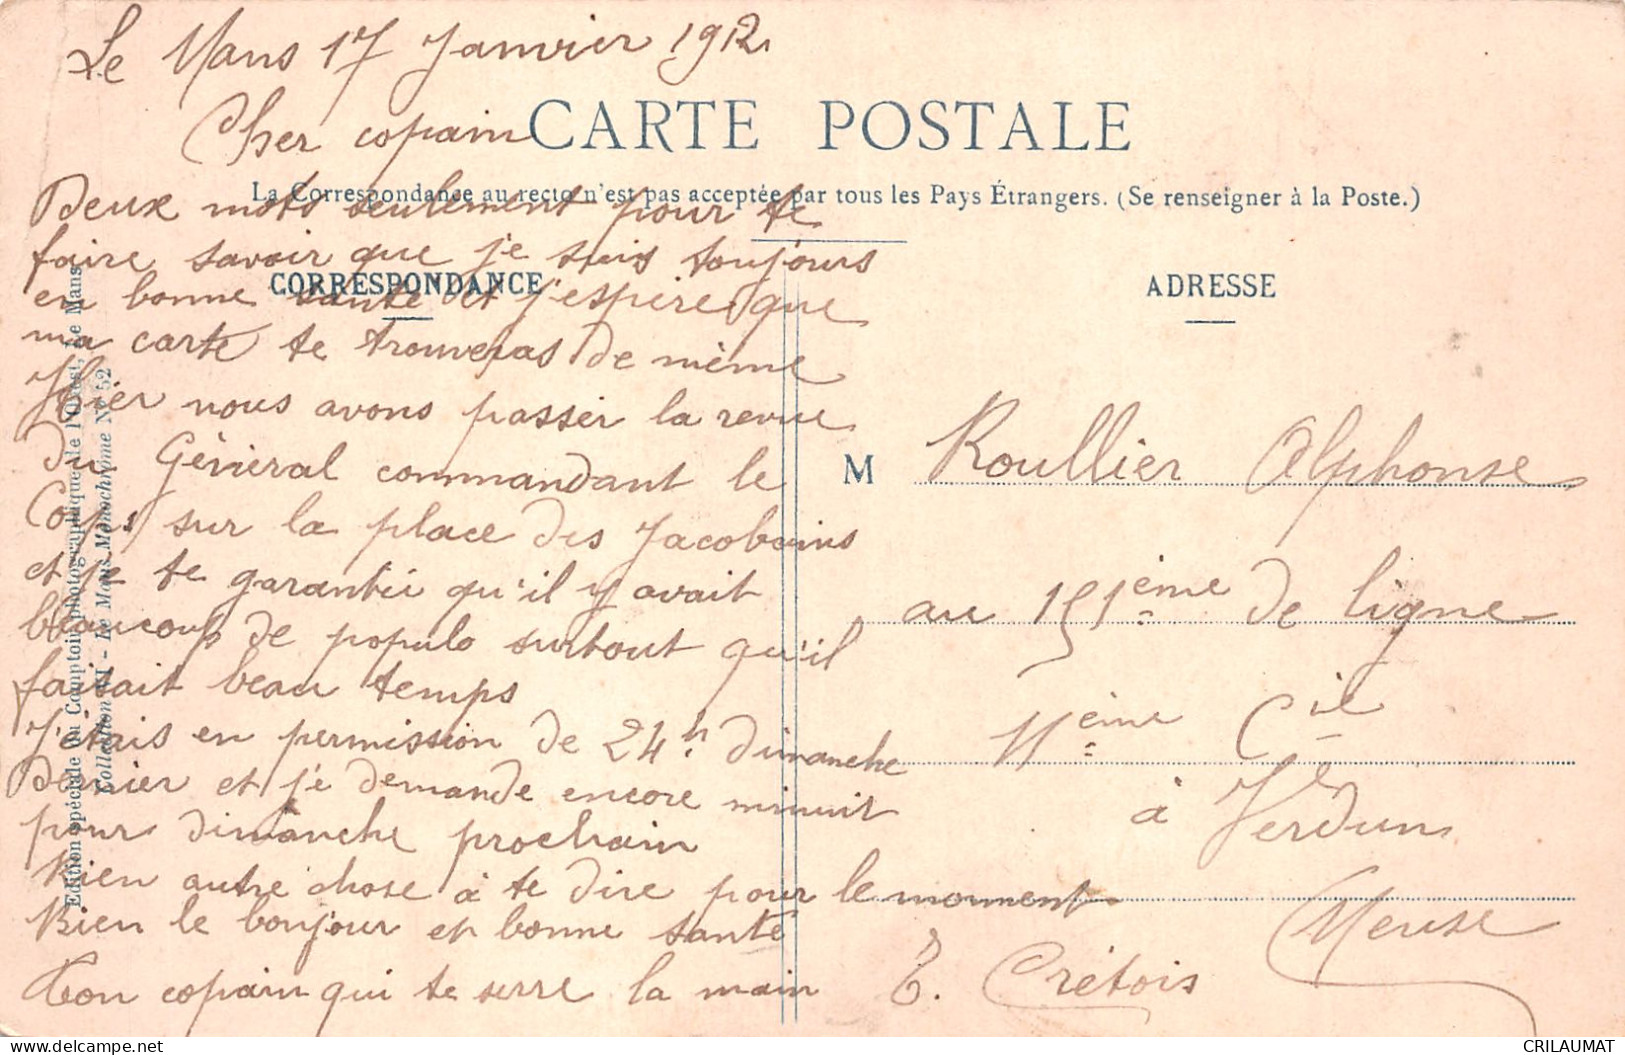 Le Mans 17 Janvier 1912
Cher copain
CARTE POSTALE
La Correspondance au recto n'est pas acceptée par tous les Pays Étrangers. (Se renseigner à la Poste.)
CORRESPONDANCE
ADRESSE
Deux mots seulement pour te
faire savoir que je suis toujours
en bonne santé et j'espère que
ma carte te trouveras de même
Hier nous avons passer la revue
du Général commandant le
Corps sur la place des Jacobains
et je te garantie qu'il y avait
beaucoup de populo surtout qu'il
faisait beau temps
J'étais en permission de 24h. dimanche
dernier et je demande encore minuit
pour dimanche prochain
Rien autre chose à te dire pour le moment.
Bien le bonjour et bonne santé
Ton copain qui te serre la main
E. Crétois
M Roullier Alphonse
au 151ème de ligne
11ème Cie
à Verdun
Meuse
Edition spéciale du Comptoir photographique de l'Ouest, Le Mans
Collection VI - Le Mans Monochrome N° 52
CRILAUMAT